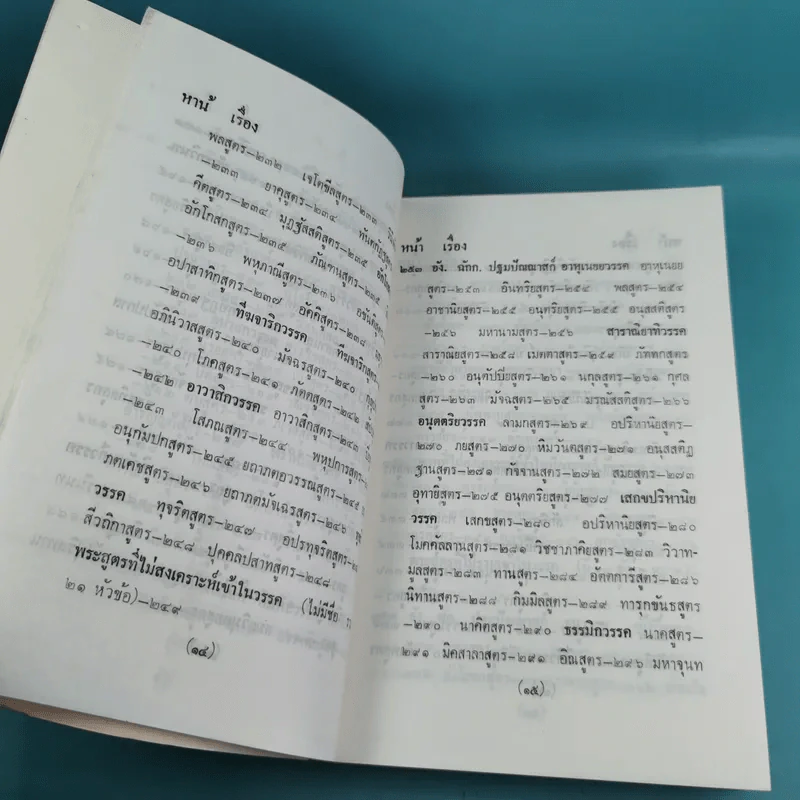 หาน้ เรื่อง
พลสูตร–๒๓๒ เจโตขีลสูตร–๒๓๓
–๒๓๓ ยาคุสูตร–๒๓๔
คีตสูตร–๒๓๔ มุฏฐัสสติสูตร–๒๓๕
อักโกสกสูตร–๒๓๕ ภัณฑนสูตร–๒๓๕
–๒๓๖ พหุภาณีสูตร–๒๓๖
อปาสาทิกสูตร–๒๓๗ อัคคิสูตร–๒๓๘
–๒๓๙ ทีฆจาริกวรรค ทีฆจาริกสูตร
อภินิวาสสูตร–๒๔๐ มัจฉรสูตร–๒๔๐
–๒๔๐ โภคสูตร–๒๔๑ ภัตตสูตร–๒๔๒
–๒๔๒ อาวาสิกวรรค อาวาสิกสูตร–
–๒๔๓ โสภณสูตร–๒๔๔ พหุปการสูตร–
อนุกัมปกสูตร–๒๔๕ ยถาภตอวรรณสูตร–๒๔๕
ภตเคชสูตร–๒๔๖ ยถาภตมัจเฉรสูตร–๒๔๖
วรรค ทุจริตสูตร–๒๔๗ อปรทุจริตสูตร–
สีวถิกาสูตร–๒๔๘ ปุคคลปสาทสูตร–๒๔๘
พระสูตรที่ไม่สงเคราะห์เข้าในวรรค (ไม่มีชื่อ
๒๑ หัวข้อ)–๒๔๙
(๑๔)
หน้า เรื่อง
๒๕๓ อัง. ฉักก. ปฐมปัณณาสก์ อาหุเนยยวรรค อาหุเนยย
สูตร–๒๕๓ อินทริยสูตร–๒๕๔ พลสูตร–๒๕๔
อาชานิยสูตร–๒๕๕ อนุตริยสูตร–๒๕๕ อนุสสติสูตร
–๒๕๖ มหานามสูตร–๒๕๖ สาราณิยาทิวรรค
สาราณิยสูตร–๒๕๘ เมตตาสูตร–๒๕๙ ภัททกสูตร
–๒๖๐ อนุทัปปิยสูตร–๒๖๑ นกุลสูตร–๒๖๑ กุศล
สูตร–๒๖๓ มัจฉสูตร–๒๖๕ มรณัสสติสูตร–๒๖๖
อนุตตริยวรรค สามกสูตร–๒๖๙ อปริหานิยสูตร–
๒๗๐ ภยสูตร–๒๗๐ หิมวันตสูตร–๒๗๑ อนุสสติฏ
ฐานสูตร–๒๗๑ กัจจานสูตร–๒๗๒ สมยสูตร–๒๗๓
อุทายิสูตร–๒๗๕ อนุตตริยสูตร–๒๗๗ เสกขปริหานิย
วรรค เสกขสูตร–๒๘๐ อปริหานิยสูตร–๒๘๐
โมคคัลลานสูตร–๒๘๑ วิชชาภาคิยสูตร–๒๘๓ วิวาท-
มูลสูตร–๒๘๓ ทานสูตร–๒๘๔ อัตตการีสูตร–๒๘๖
นิทานสูตร–๒๘๘ กิมมิลสูตร–๒๘๙ ทารุกขันธสูตร
–๒๙๐ นาคิตสูตร–๒๙๐ ธรรมิกวรรค นาคสูตร–
๒๙๑ มิคสาลาสูตร–๒๙๑ อิณสูตร–๒๙๖ มหาจุนท
(๑๕)